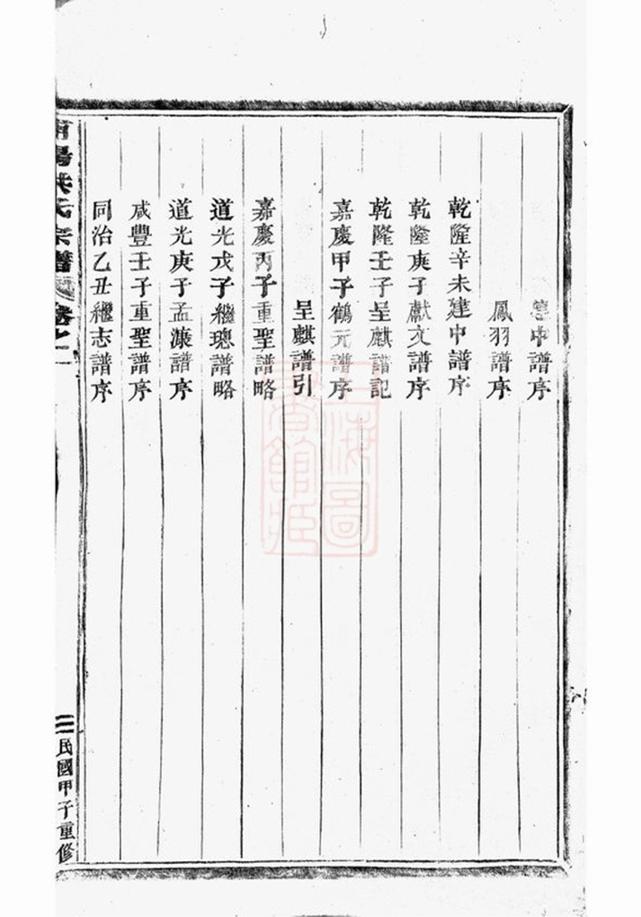 中譜序
鳳羽譜序
乾隆辛未建中譜序
乾隆庚子獻文譜序
乾隆壬子呈麒譜記
嘉慶甲子鶴元譜序
呈麒譜引
嘉慶丙子重聖譜略
道光戊子繼璁譜略
道光庚子孟濂譜序
咸豐壬子重聖譜序
同治乙丑繼志譜序
南陽洪氏宗譜
卷之一
三
民國甲子重修
上海圖書館藏